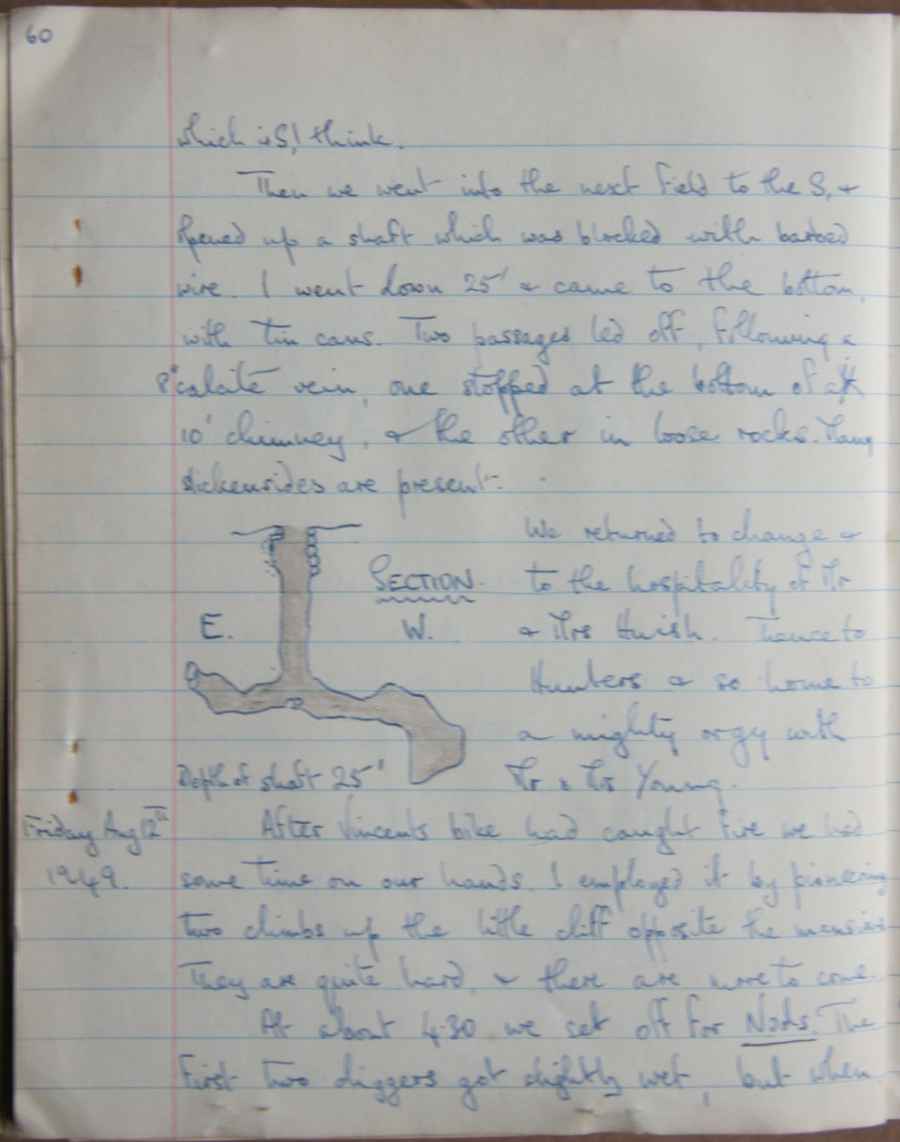 60
which is S, I think.
Then we went into the next field to the S, &
opened up a shaft which was blocked with barbed
wire. I went down 25' & came to the bottom,
with tin cans. Two passages led off, following a
8" calcite vein, one stopped at the bottom of a
10' chimney, & the other in loose rocks. Many
slickensides are present.
We returned to change &
SECTION
to the hospitality of Mr
E.
W.
& Mrs Huish. Thence to
Hunters & so home to
a mighty orgy with
Depth of shaft 25'
Mr & Mr Young.
Friday Aug 12th
1949.
After Vincents bike had caught fire we had
some time on our hands. I employed it by pioneering
two climbs up the little cliff opposite the
They are quite hard, & there are more to come.
At about 4.30 we set off for Nods. The
first two diggers got slightly wet, but when